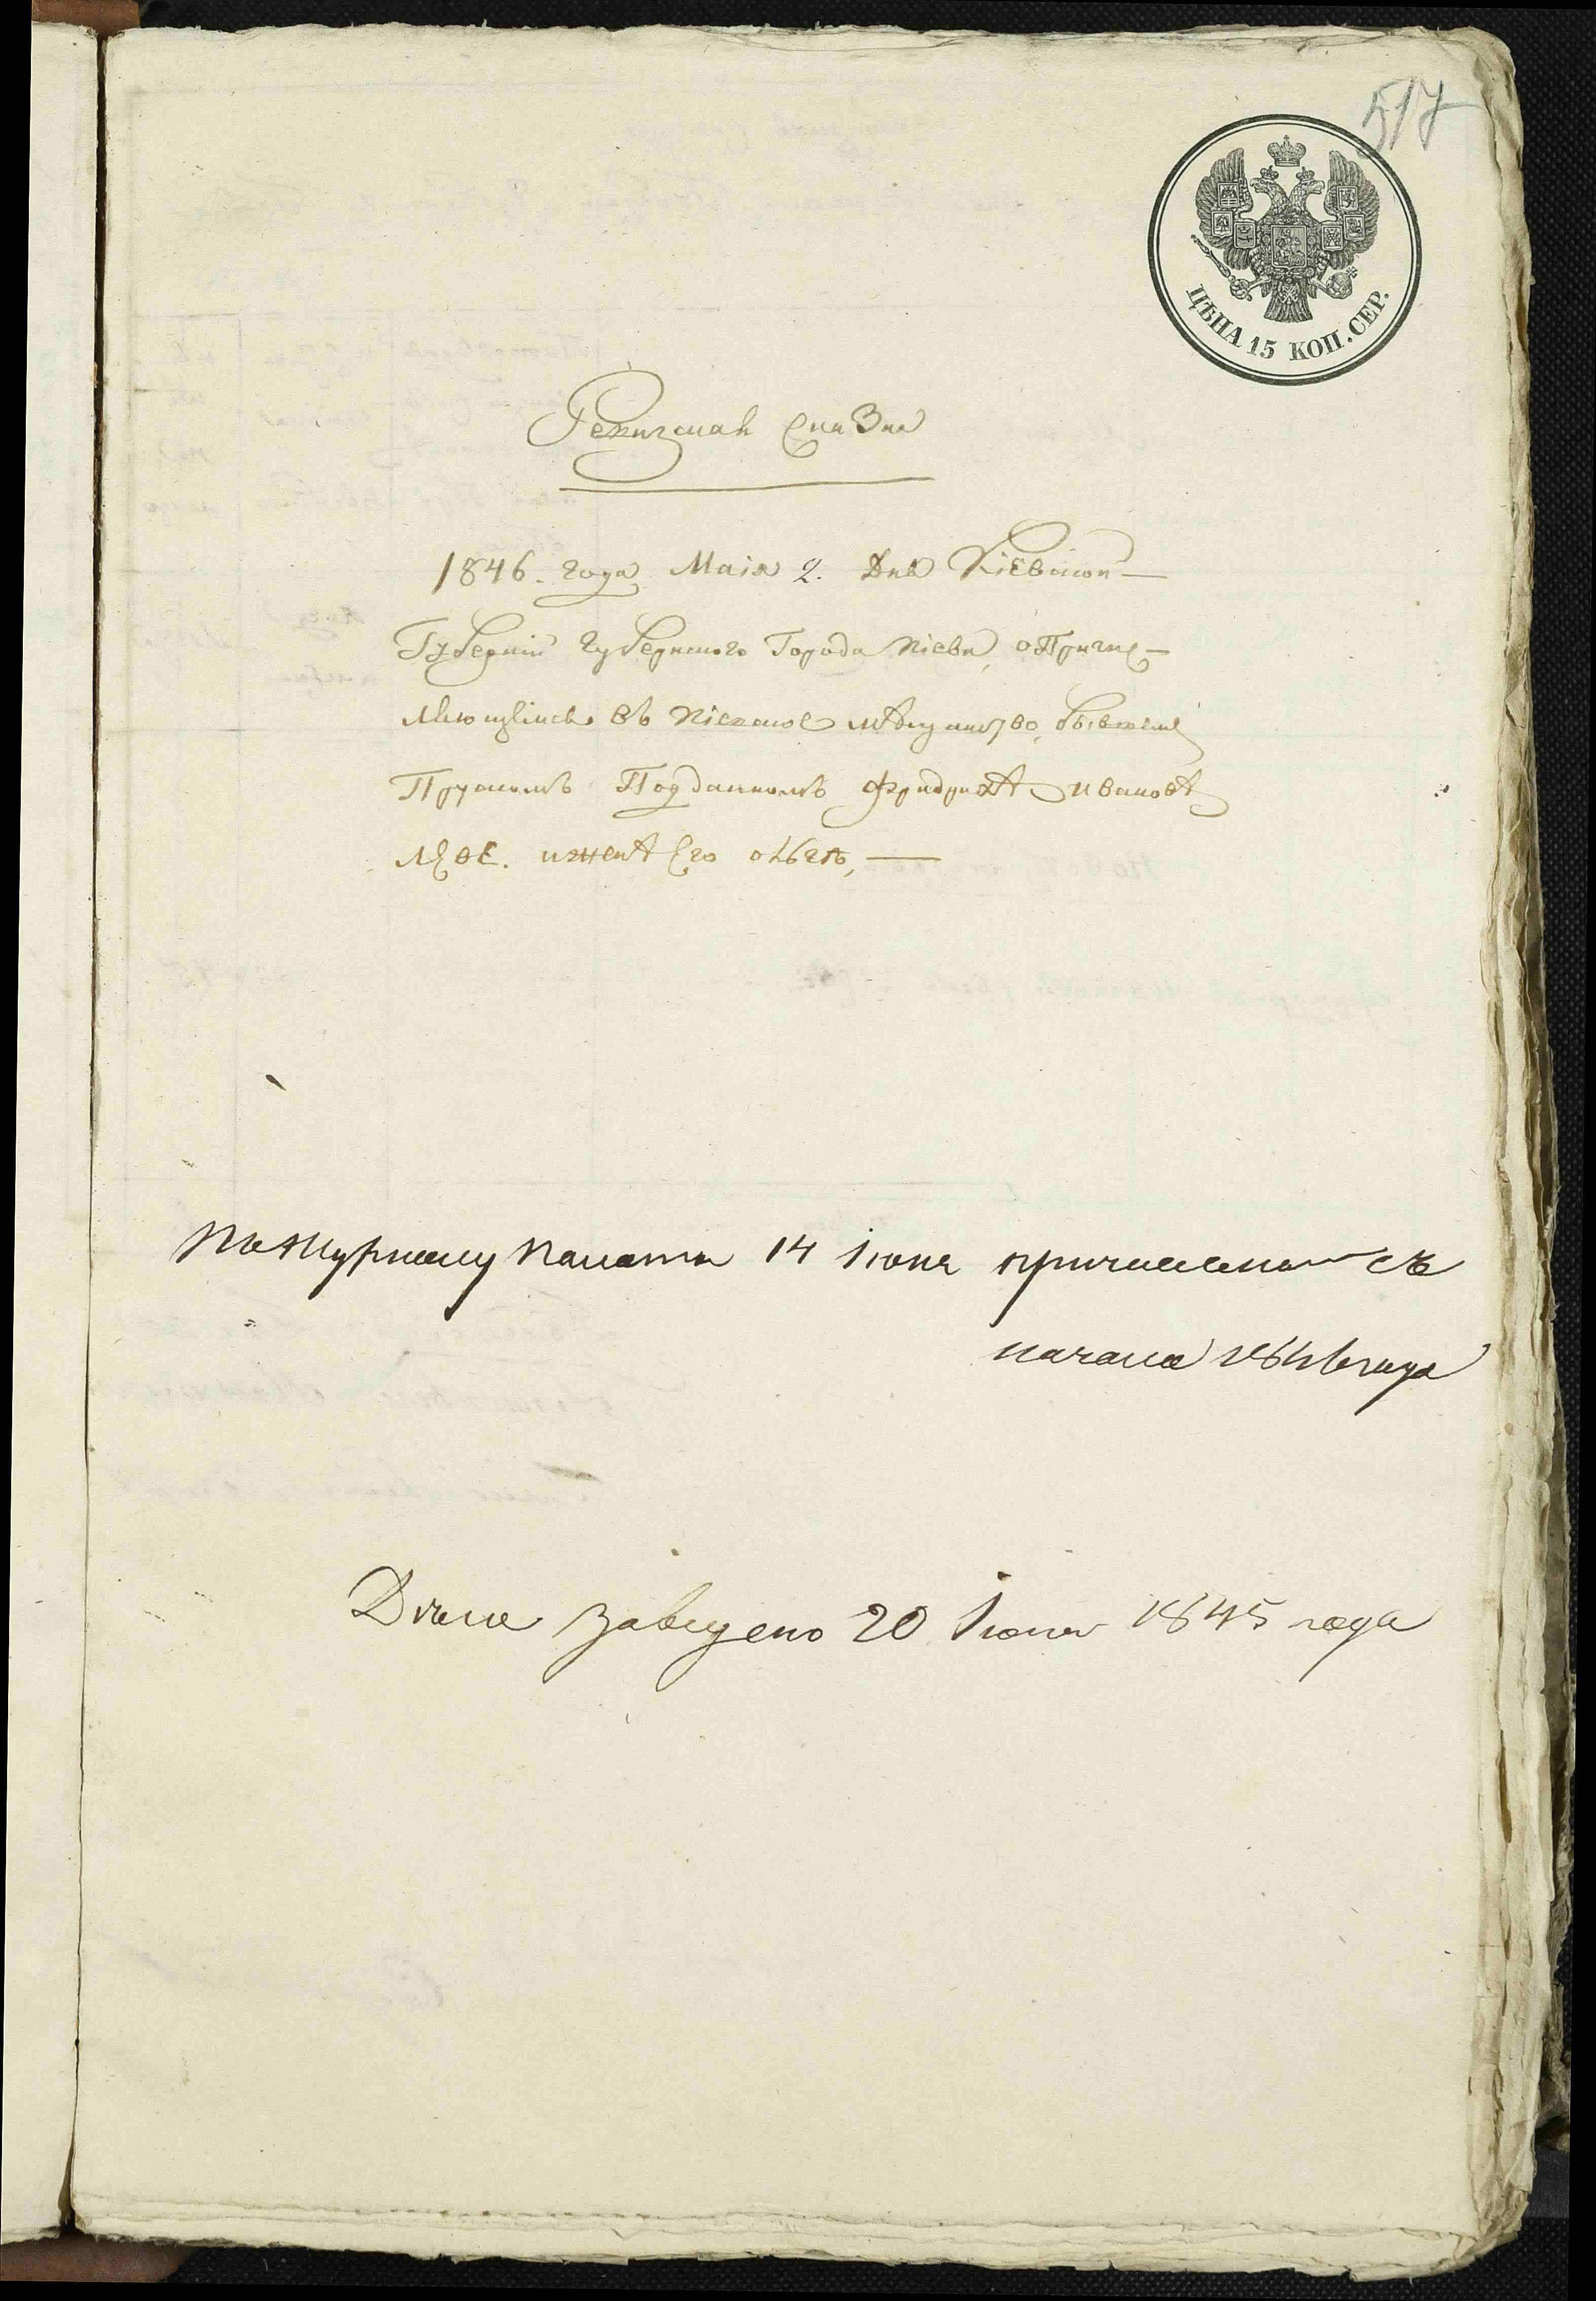 517
ЦѢНА 15 КОП. СЕР.
Ревизская Сказка
1846. года Маія 2. Дня Кіевской
Губерніи Губернскаго Города Кіева, о Причис-
ляющемся въ Кіевское мѣщанство, бывшемъ
Прускомъ Подданномъ Фридрихѣ Ивановѣ
и женѣ Его
По Журналу Палаты 14 Іюня причислена съ
начала 1846 года
Дѣло заведено 20 Іюня 1845 года